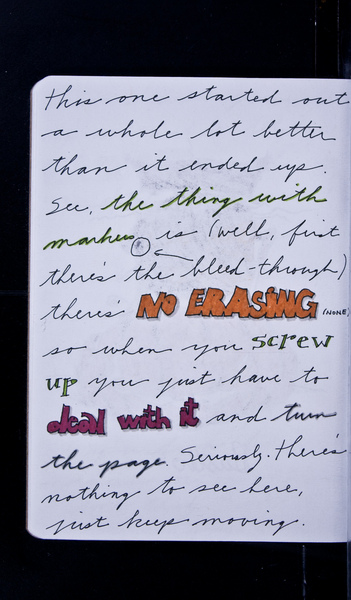 this one started out
a whole lot better
than it ended up.
See, the thing with
markers is (well, first
there's the bleed-through)
there's NO ERASING (NONE)
so when you screw
up you just have to
deal with it and turn
the page. Seriously. There's
nothing to see here,
just keep moving.